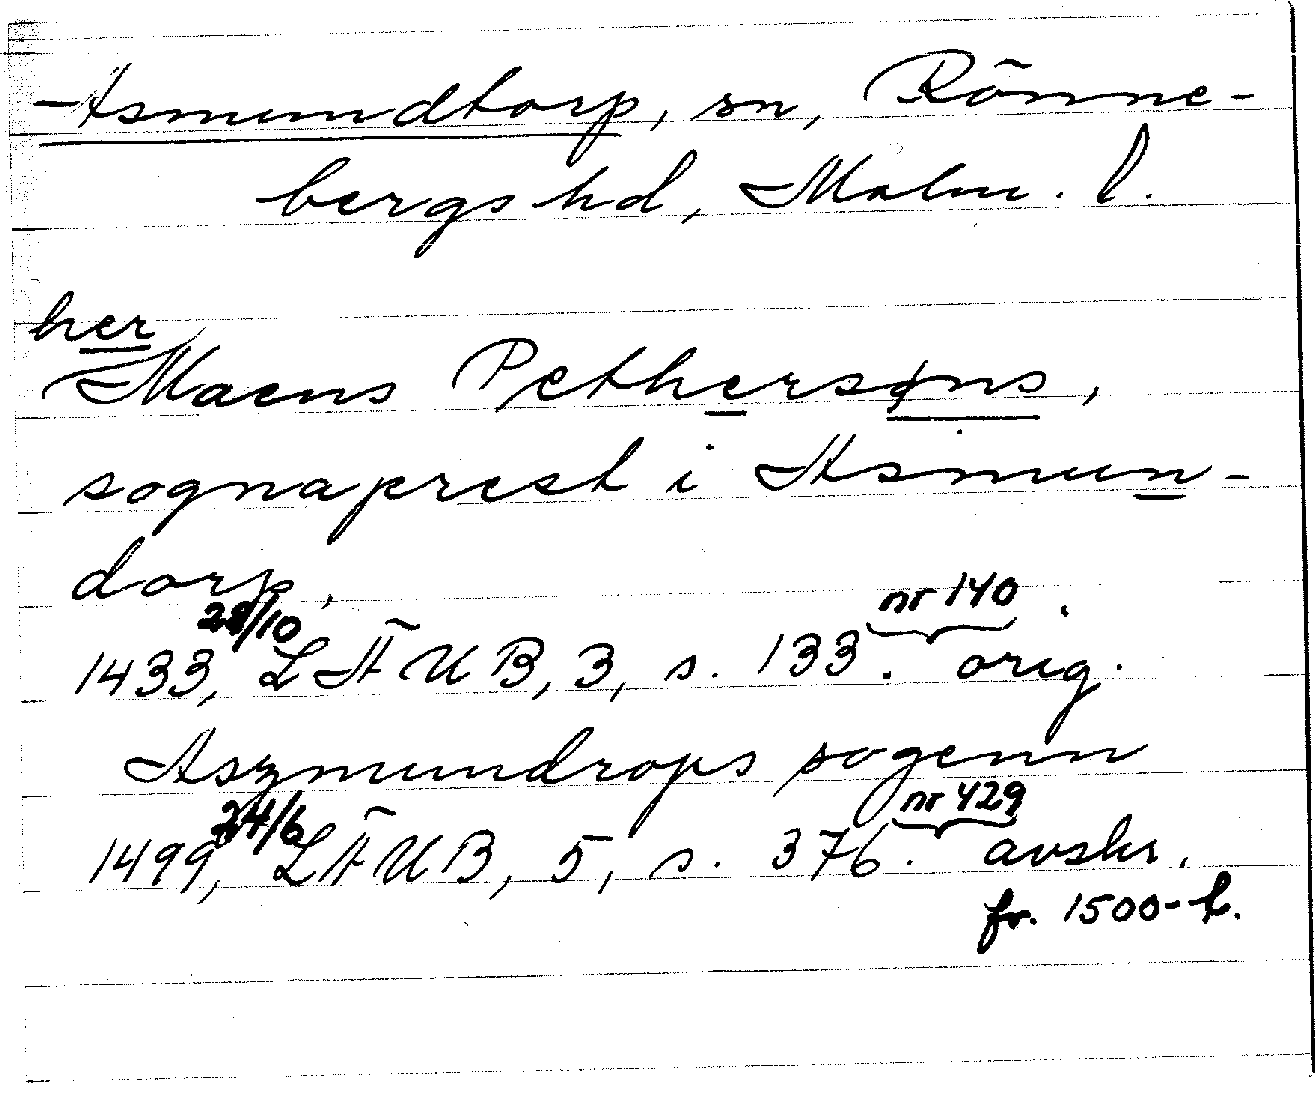 Asmundtorp, sn, Rönne-
bergs hd, Malm. l.
her
Maens Pethersøns,
sognaprest i Asmun-
dorp,
28/10 nr 140
1433, LÄUB, 3, s. 133. orig.
Aszmundrops sogenn
24/6 nr 429
1499, LÄUB, 5, s. 376. avskr.
fr. 1500-t.